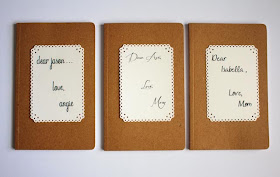 dear jason...
love,
angie
Dear Ava,
Love
Max
Dear
Isabella,
Love,
Mom